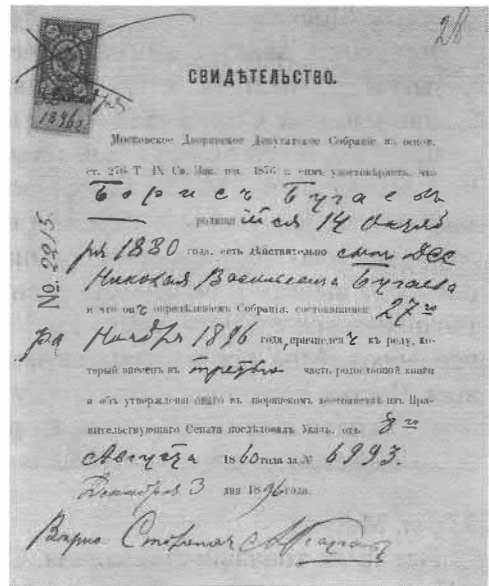 28
1896 г.
СВИДѢТЕЛЬСТВО.
Московское Дворянское Депутатское Собрание на основ.
ст. 276 Т. IX Св. Зак. изд. 1876 г. симъ удостовѣряетъ, что
Борисъ Бугаевъ
родившійся 14 Октяб
ря 1880 года, есть дѣйствительно сынъ ДСС
Николая Васильевича Бугаева
и что онъ опредѣленіемъ Собранія, состоявшимся 27го
Ноября 1896 года, причисленъ къ роду, ко-
торый внесенъ въ третью часть родословной книги
и объ утвержденіи онаго въ дворянскомъ достоинствѣ изъ Пра-
вительствующаго Сената послѣдовалъ Указъ, отъ 8го
Августа 1860 года за № 6993.
Декабря 3 дня 1896 года.
Вѣрно
No. 2215.